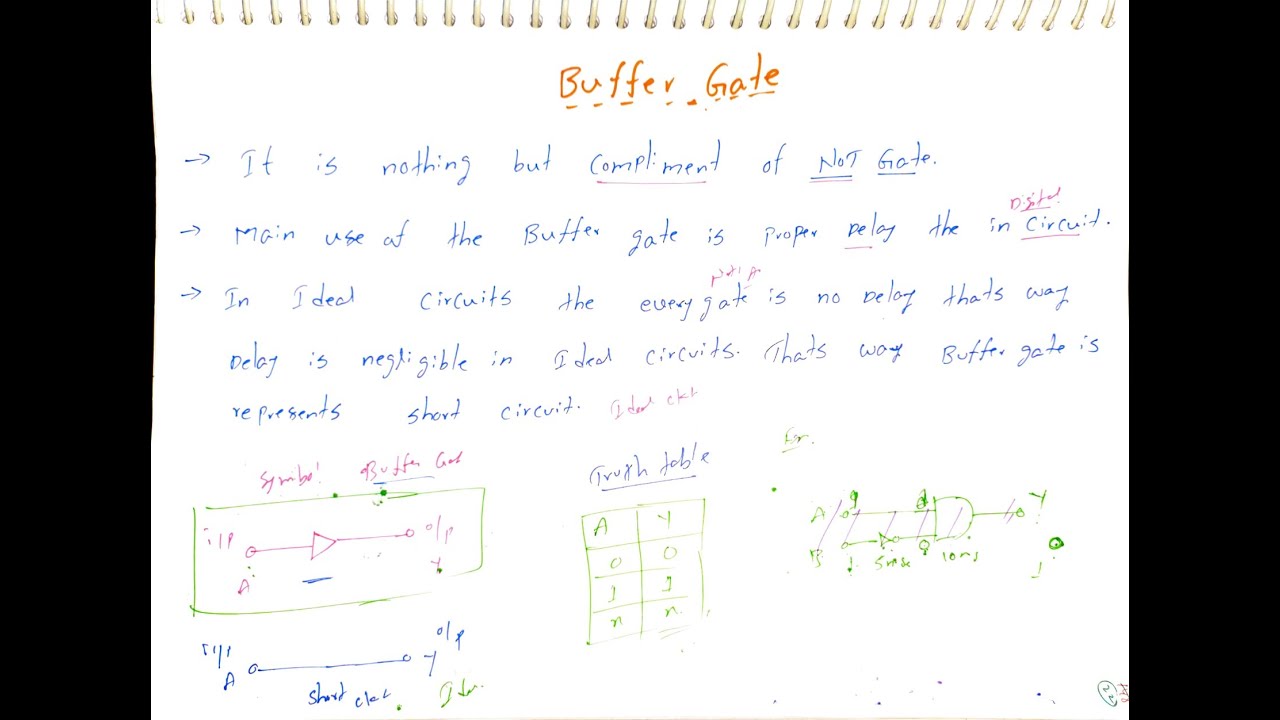 Buffer Gate
→ It is nothing but Compliment of NOT Gate.
Digital
→ Main use of the Buffer gate is Proper Delay the in Circuit.
→ In Ideal Circuits the every gate is no Delay thats way
Delay is negligible in Ideal circuits. Thats way Buffer gate is
represents short circuit. Ideal ckt
Symbol Buffer Gat
Truth table
i/p o/p
A Y
A Y
0 0
1 1
n n
A Y
B 5 10
I/P o/p
A Y
short ckt
22